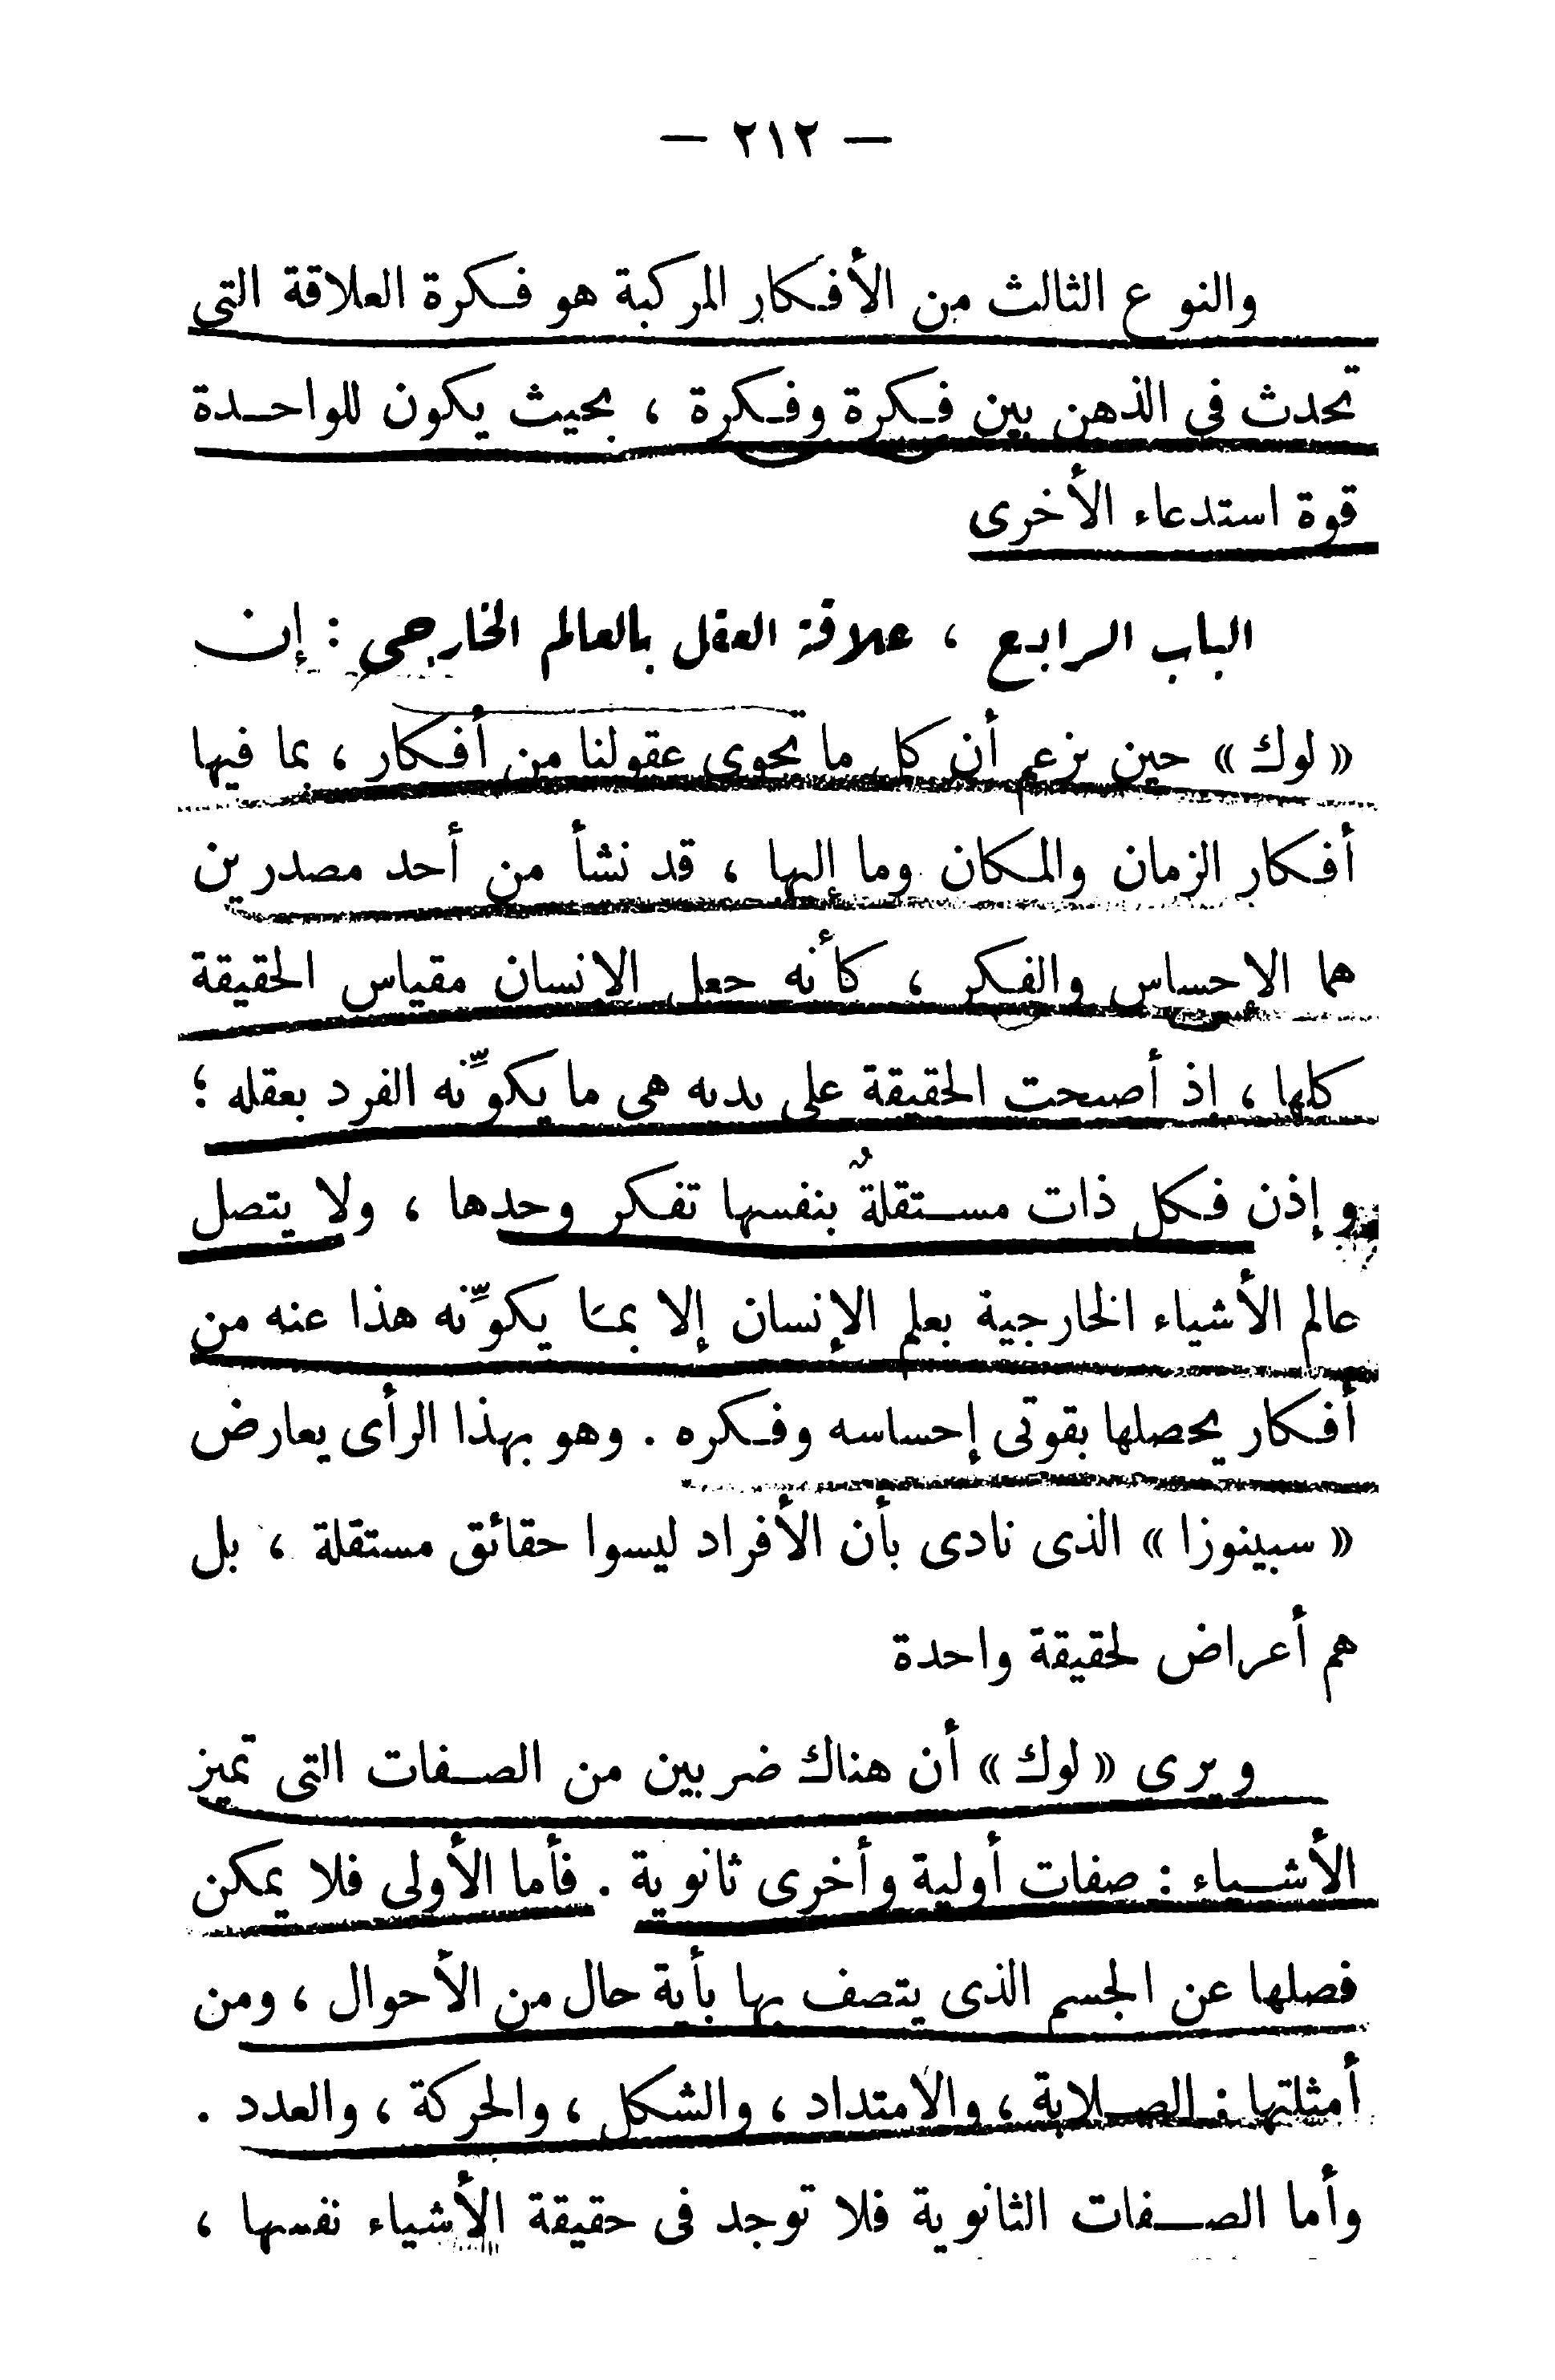 — ٢١٢ —
والنوع الثالث من الأفكار المركبة هو فكرة العلاقة التى
تحدث فى الذهن بين فكرة وفكرة ، بحيث يكون للواحدة
قوة استدعاء الأخرى
الباب الرابع ، علاقة العقل بالعالم الخارجى : إن
« لوك » حين يزعم أن كل ما تحوى عقولنا من أفكار ، بما فيها
أفكار الزمان والمكان وما إليها ، قد نشأ من أحد مصدرين
هما الاحساس والفكر ، كأنه جعل الانسان مقياس الحقيقة
كلها ، اذ أصبحت الحقيقة على يديه هى ما يكوِّنه الفرد بعقله ؛
وإذن فكل ذات مستقلةٌ بنفسها تفكر وحدها ، ولا يتصل
عالم الأشياء الخارجية بعلم الإنسان إلا بما يكوِّنه هذا عنه من
أفكار يحصلها بقوتى إحساسه وفكره . وهو بهذا الرأى يعارض
« سبينوزا » الذى نادى بأن الأفراد ليسوا حقائق مستقلة ، بل
هم أعراض لحقيقة واحدة
ويرى « لوك » أن هناك ضربين من الصفات التى تميز
الأشياء : صفات أولية وأخرى ثانوية . فأما الأولى فلا يمكن
فصلها عن الجسم الذى يتصف بها بأية حال من الأحوال ، ومن
أمثلتها : الصلابة ، والامتداد ، والشكل ، والحركة ، والعدد .
وأما الصفات الثانوية فلا توجد فى حقيقة الأشياء نفسها ،